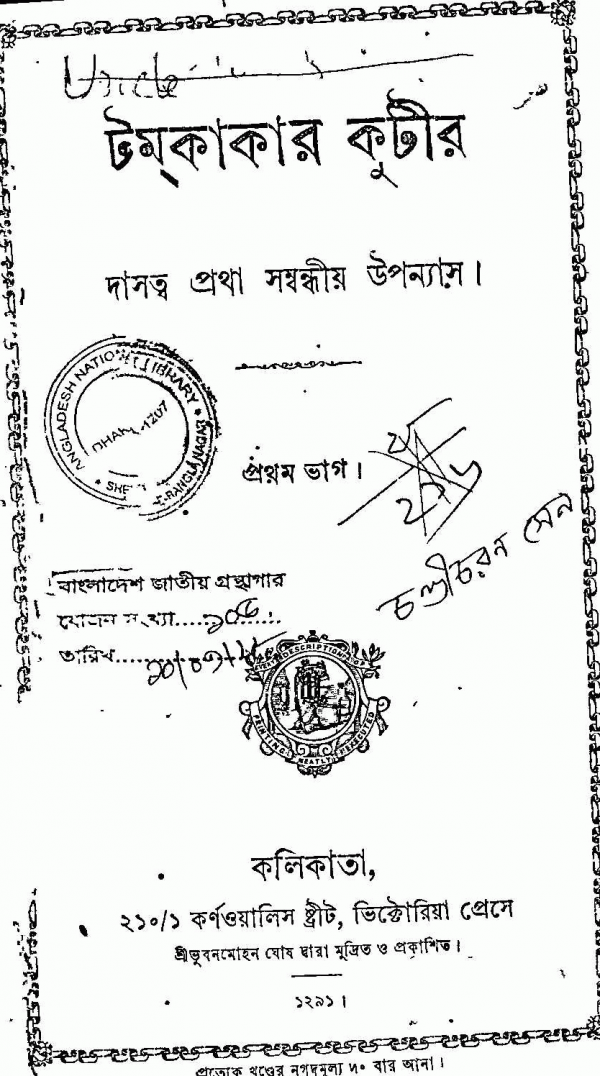 Uncle
টম্‌কাকার কুটীর
দাসত্ব প্রথা সম্বন্ধীয় উপন্যাস।
BANGLADESH NATIONAL LIBRARY
SHER-E-BANGLA NAGAR
DHAKA-1207
প্রথম ভাগ।
চণ্ডীচরন সেন
বাংলাদেশ জাতীয় গ্রন্থাগার
যোজন সংখ্যা
তারিখ
DESCRIPTIONS OF
PRINTING NEATLY EXECUTED
কলিকাতা,
২১০/১ কর্ণওয়ালিস ষ্ট্রীট, ভিক্টোরিয়া প্রেসে
শ্রীভুবনমোহন ঘোষ দ্বারা মুদ্রিত ও প্রকাশিত।
১২৯১।
প্রত্যেক খণ্ডের নগদমূল্য ৸০ বার আনা।